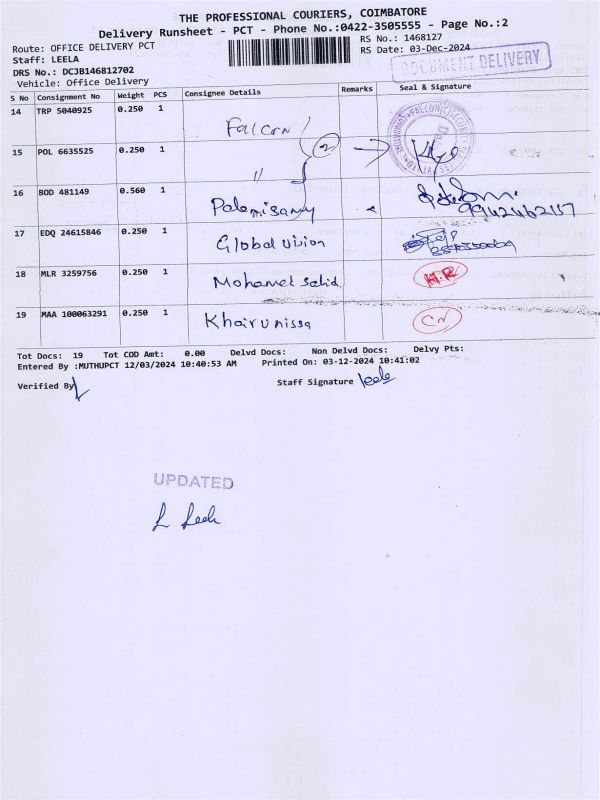 THE PROFESSIONAL COURIERS, COIMBATORE
Delivery Runsheet - PCT - Phone No.:0422-3505555 - Page No.:2
Route: OFFICE DELIVERY PCT
RS No.: 1468127
Staff: LEELA
RS Date: 03-Dec-2024
DOCUMENT DELIVERY
DRS No.: DCJB146812702
Vehicle: Office Delivery
S No Consignment No Weight PCS Consignee Details Remarks Seal & Signature
14 TRP 5040925 0.250 1 Falcon
15 POL 6635525 0.250 1 "
2
16 BOD 481149 0.560 1 Palanisamy
17 EDQ 24615846 0.250 1 Global vision
18 MLR 3259756 0.250 1 Mohamel sahid. H.R
19 MAA 100063291 0.250 1 Khairunissa CN
Tot Docs: 19 Tot COD Amt: 0.00 Delvd Docs: Non Delvd Docs: Delvy Pts:
Entered By :MUTHUPCT 12/03/2024 10:40:53 AM Printed On: 03-12-2024 10:41:02
Verified By
Staff Signature leela
UPDATED